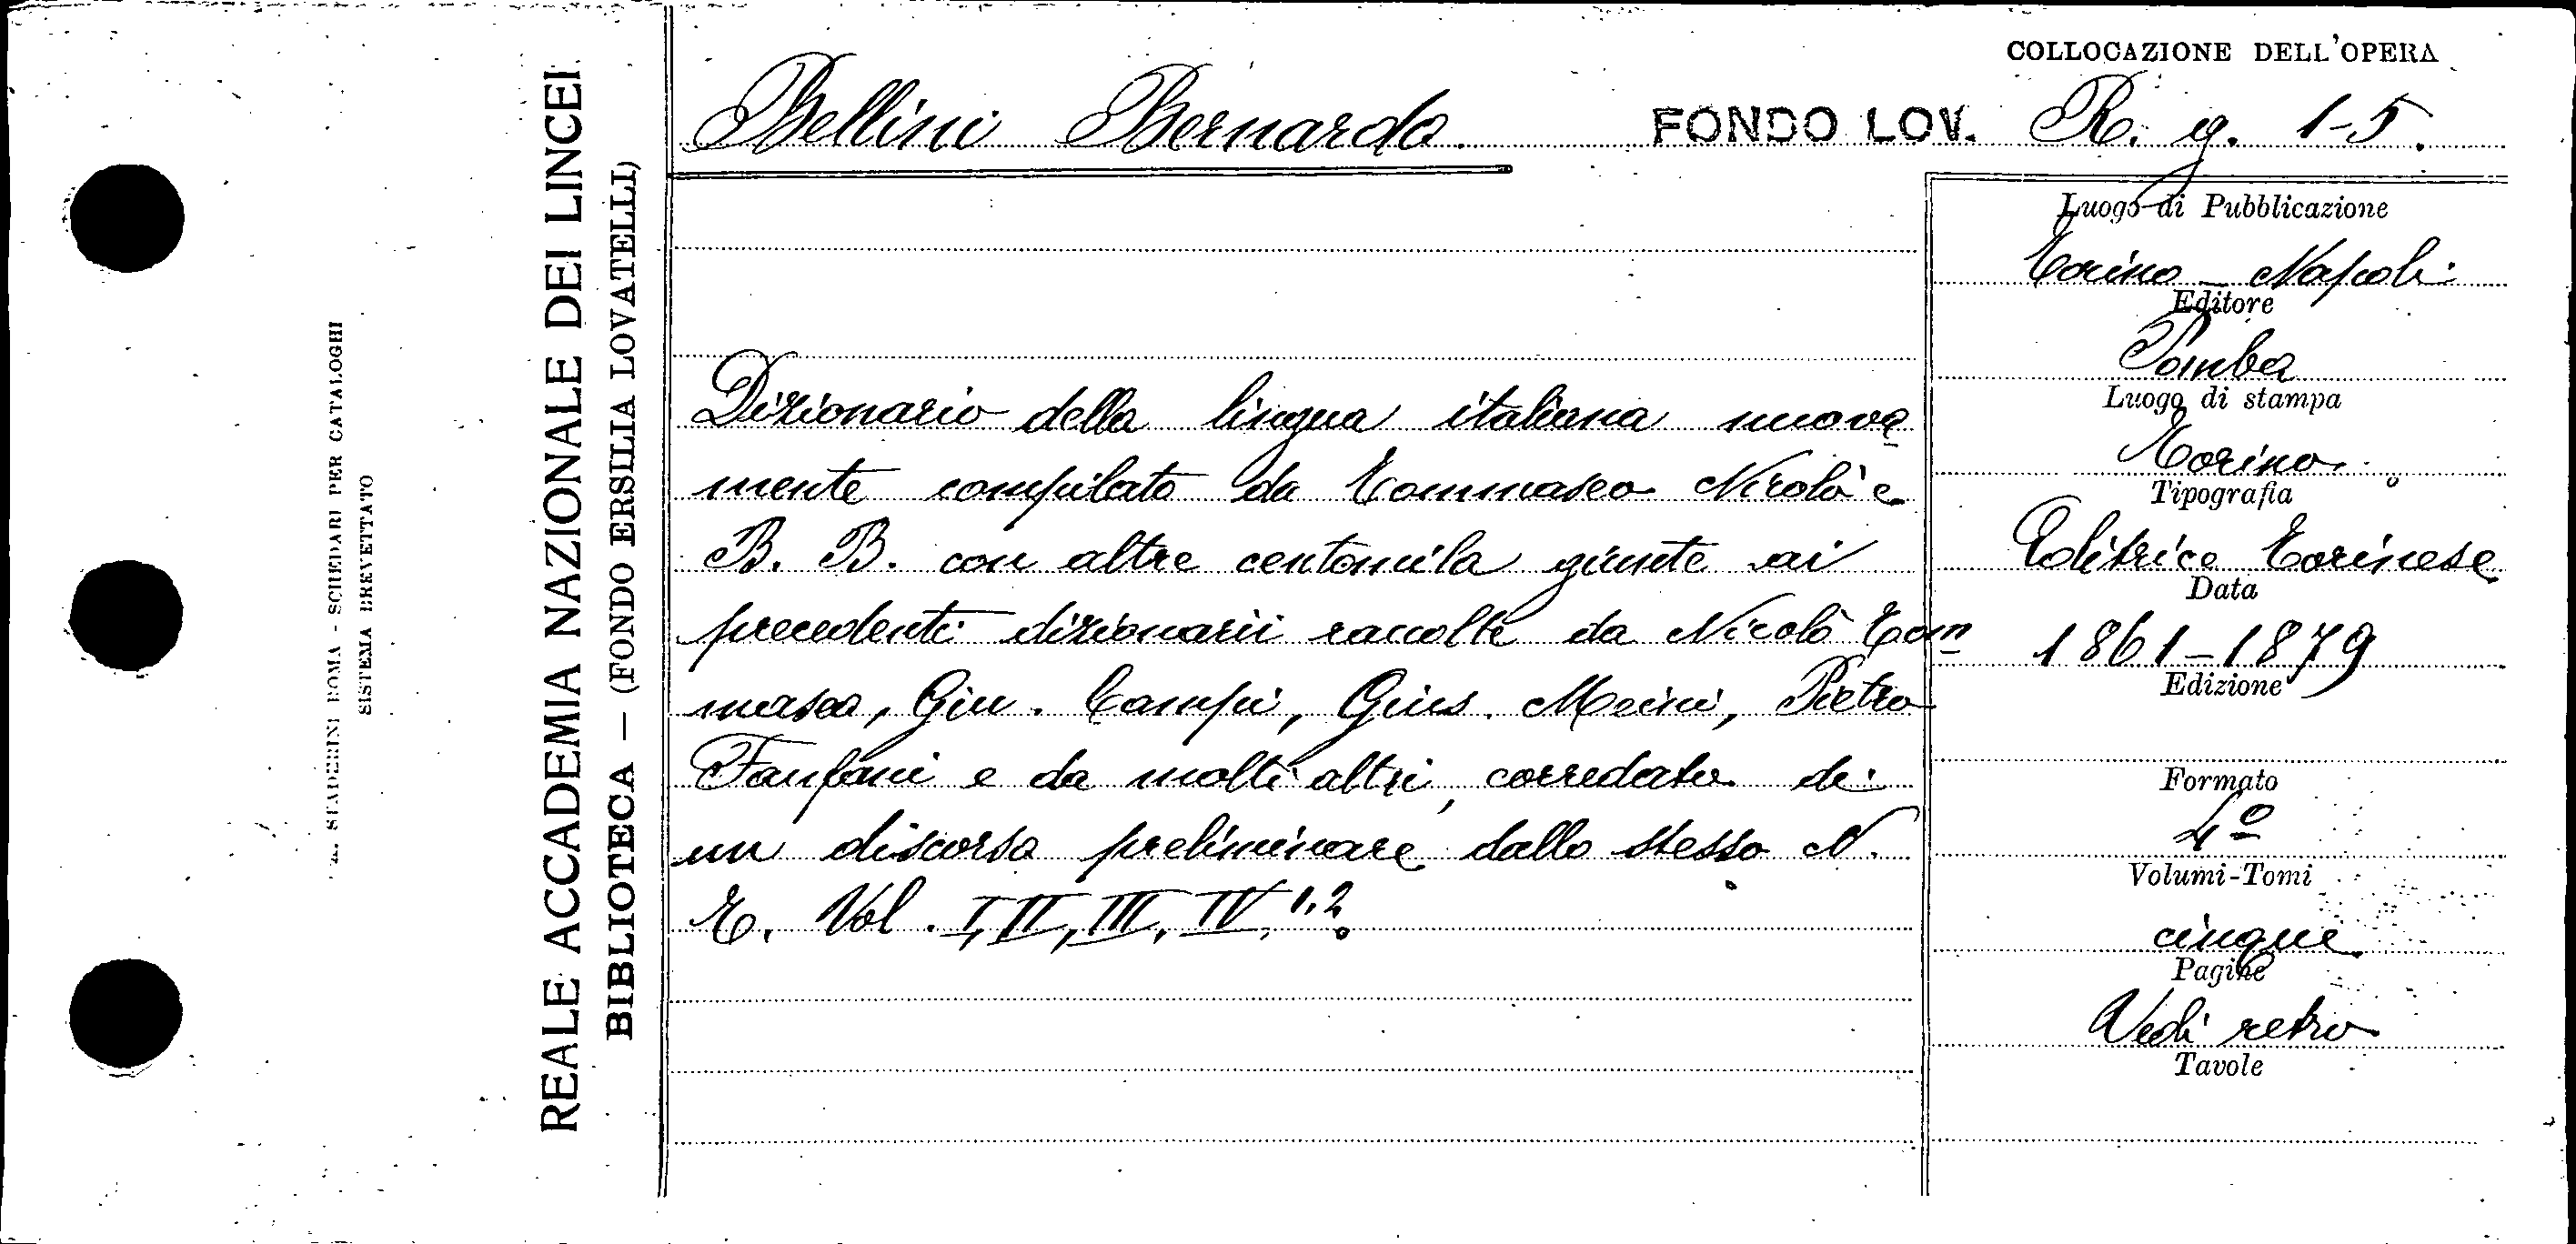 COLLOCAZIONE DELL'OPERA
Bellini Bernardo. FONDO LOV. R. g. 1-5.
REALE ACCADEMIA NAZIONALE DEI LINCEI
BIBLIOTECA — (FONDO ERSILIA LOVATELLI)
STADERINI ROMA - SCHEDARI PER CATALOGHI
SISTEMA BREVETTATO
Dizionario della lingua italiana nuova
mente compilato da Tommaseo Nicolò e
B. B. con altre centomila giunte ai
precedenti dizionarii raccolte da Nicolò Tom
maseo, Giu. Campi, Gius. Meini, Pietro
Fanfani e da molti altri, corredato di
un discorso preliminare dallo stesso N.
T. Vol. I, II, III, IV, 1.2.
Luogo di Pubblicazione
Torino - Napoli
Editore
Pomba
Luogo di stampa
Torino
Tipografia
Editrice Torinese
Data
1861-1879
Edizione
Formato
4º
Volumi-Tomi
cinque
Pagine
Vedi retro
Tavole